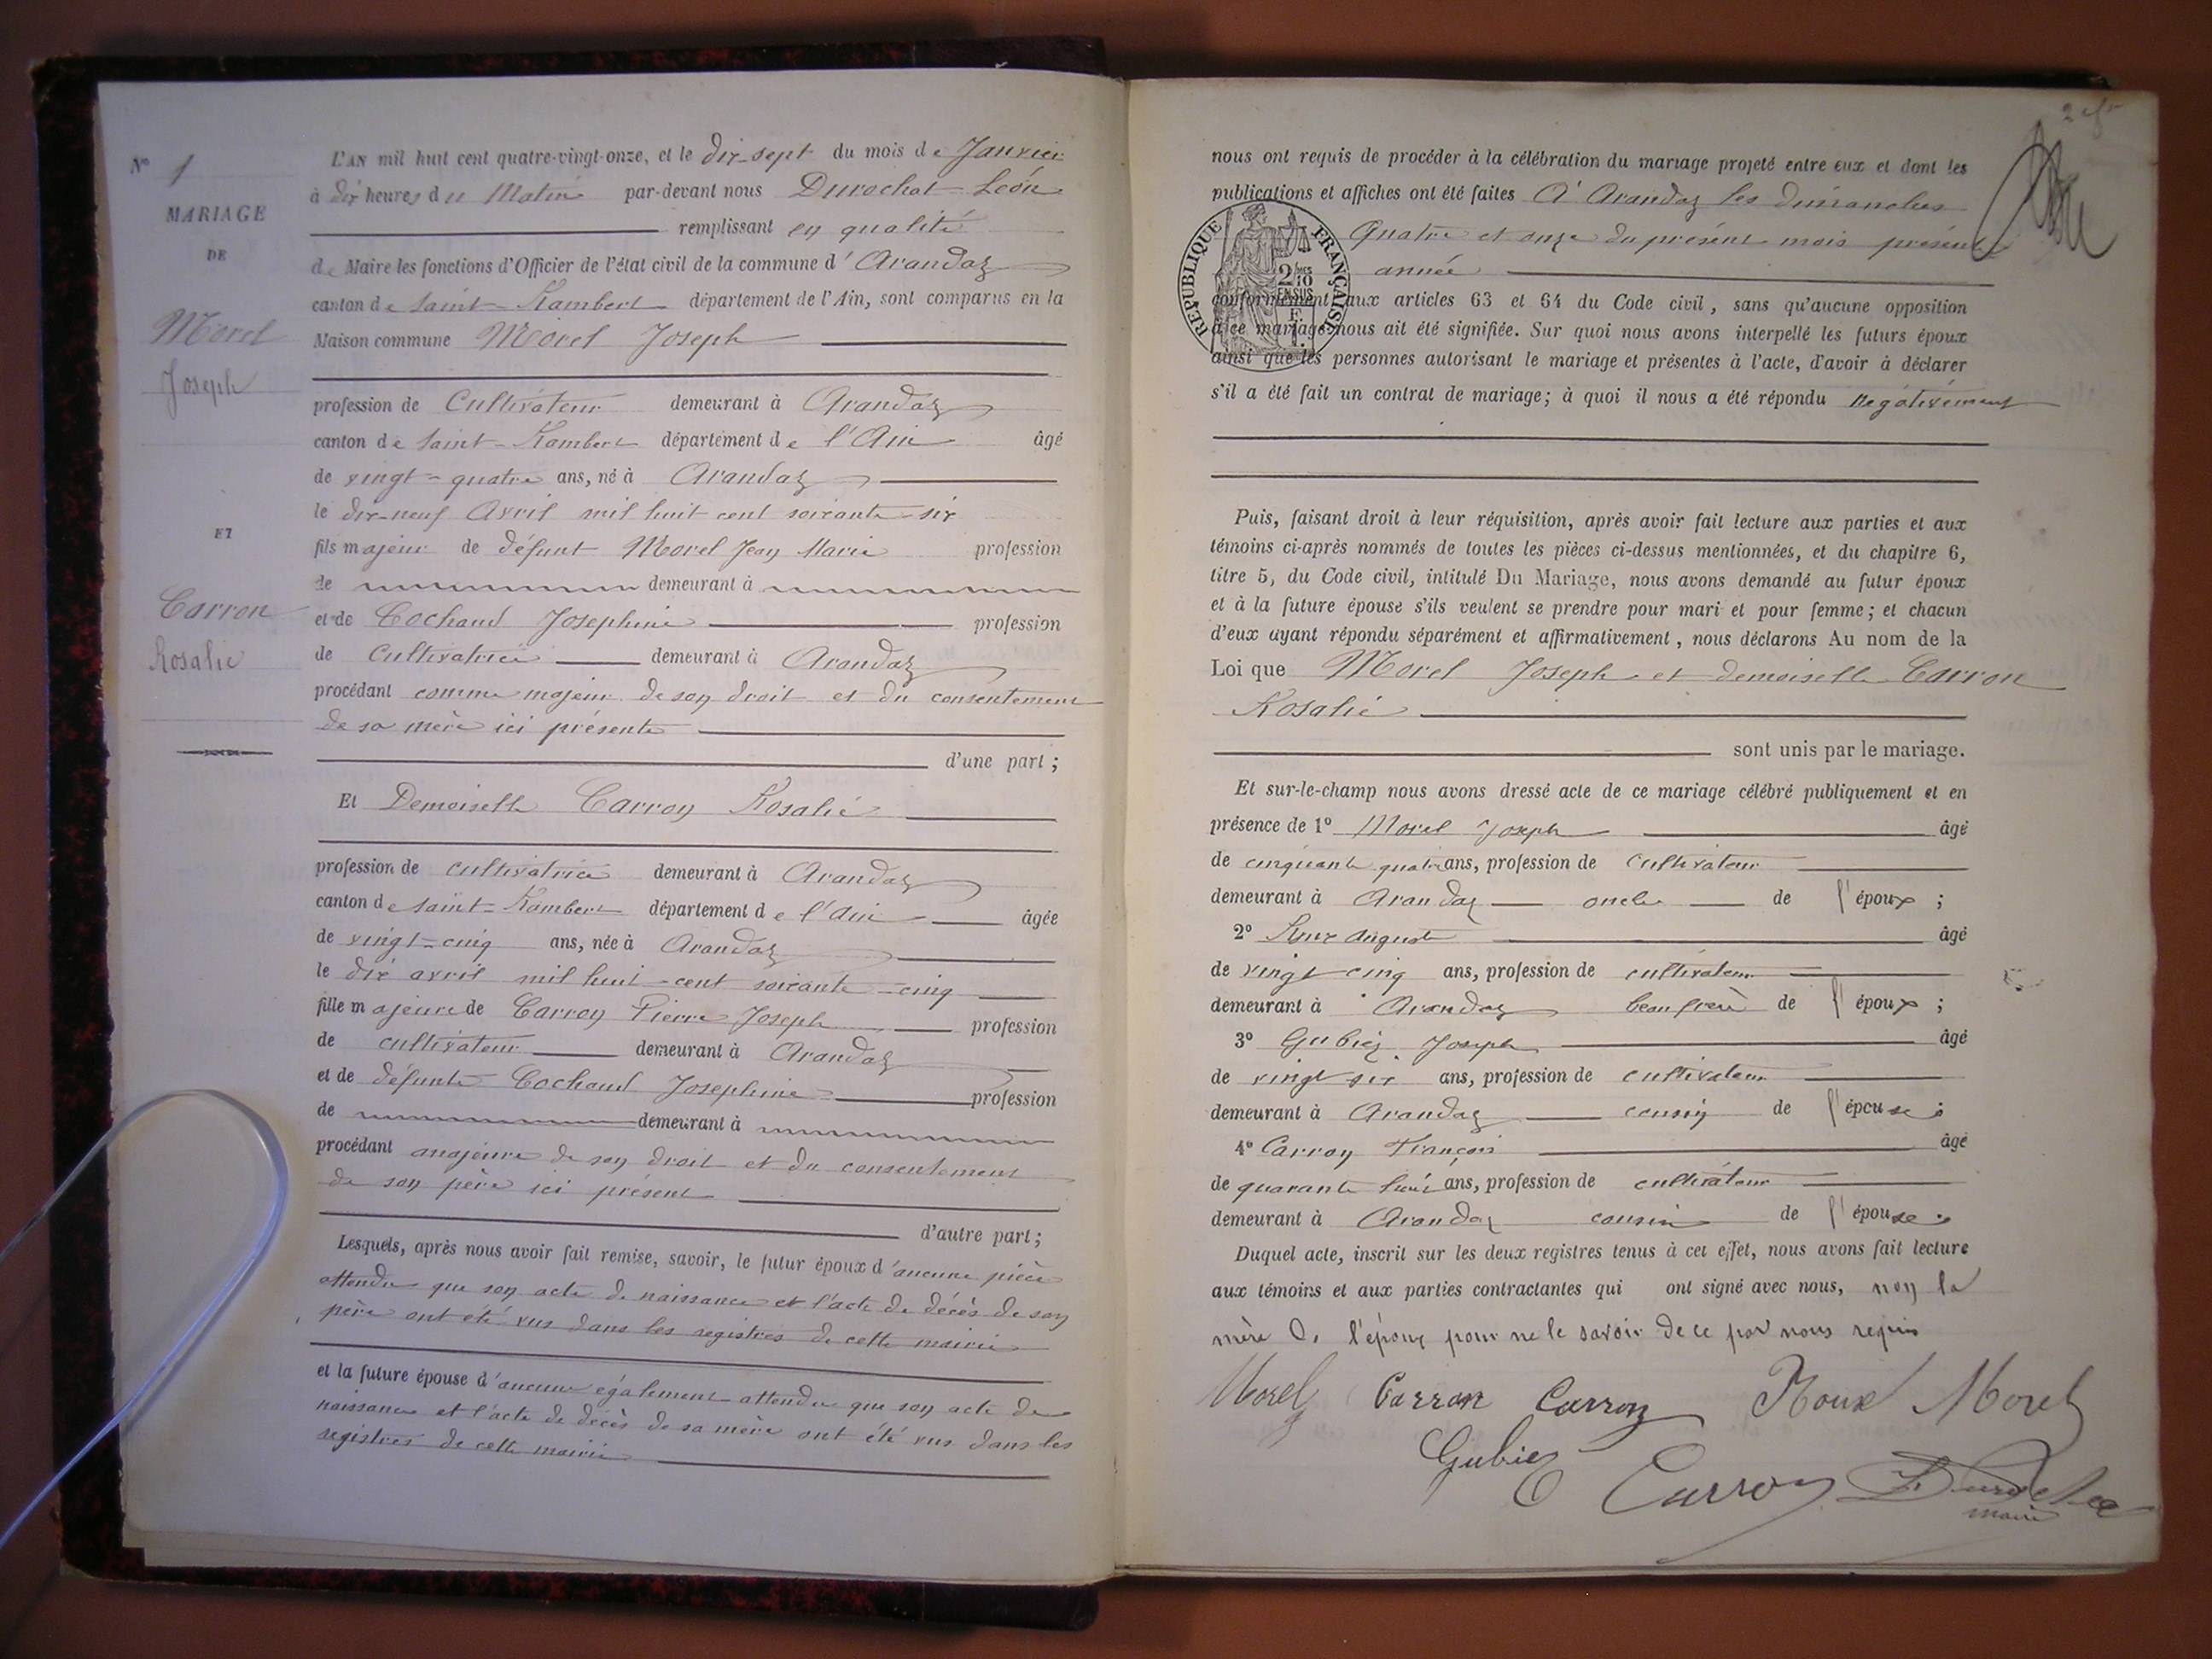 N° 1
MARIAGE
DE
Morel
Joseph
ET
Carron
Rosalie
L'AN mil huit cent quatre-vingt-onze, et le dix-sept du mois de Janvier
à dix heures du Matin par-devant nous Durochat Léon
remplissant en qualité
de Maire les fonctions d'Officier de l'état civil de la commune d'Arandaz
canton de Saint-Rambert département de l'Ain, sont comparus en la
Maison commune Morel Joseph
profession de Cultivateur demeurant à Arandaz
canton de Saint-Rambert département de l'Ain âgé
de vingt-quatre ans, né à Arandaz
le dix-neuf Avril mil huit cent soixante-six
fils majeur de défunt Morel Jean Marie profession
de demeurant à
et de Cochaud Josephine profession
de Cultivatrice demeurant à Arandaz
procédant comme majeur de son droit et du consentement
de sa mère ici présente
d'une part ;
Et Demoiselle Carron Rosalie
profession de cultivatrice demeurant à Arandaz
canton de Saint-Rambert département de l'Ain âgée
de vingt-cinq ans, née à Arandaz
le dix avril mil huit-cent soixante-cinq
fille majeure de Carron Pierre Joseph profession
de cultivateur demeurant à Arandaz
et de défunte Cochaud Josephine profession
de demeurant à
procédant majeure de son droit et du consentement
de son père ici présent
d'autre part ;
Lesquels, après nous avoir fait remise, savoir, le futur époux d'aucune pièce
attendu que son acte de naissance et l'acte de décès de son
père ont été vus dans les registres de cette mairie
et la future épouse d'aucune également attendu que son acte de
naissance et l'acte de décès de sa mère ont été vus dans les
registres de cette mairie
nous ont requis de procéder à la célébration du mariage projeté entre eux et dont les
publications et affiches ont été faites A Arandaz les dimanches
quatre et onze du présent mois présente
année
RÉPUBLIQUE FRANÇAISE
2/10 EN SUS
conformément aux articles 63 et 64 du Code civil, sans qu'aucune opposition
à ce mariage nous ait été signifiée. Sur quoi nous avons interpellé les futurs époux
ainsi que les personnes autorisant le mariage et présentes à l'acte, d'avoir à déclarer
s'il a été fait un contrat de mariage; à quoi il nous a été répondu négativement
Puis, faisant droit à leur réquisition, après avoir fait lecture aux parties et aux
témoins ci-après nommés de toutes les pièces ci-dessus mentionnées, et du chapitre 6,
titre 5, du Code civil, intitulé Du Mariage, nous avons demandé au futur époux
et à la future épouse s'ils veulent se prendre pour mari et pour femme; et chacun
d'eux ayant répondu séparément et affirmativement, nous déclarons Au nom de la
Loi que Morel Joseph et demoiselle Carron
Rosalie
sont unis par le mariage.
Et sur-le-champ nous avons dressé acte de ce mariage célébré publiquement et en
présence de 1° Morel Joseph âgé
de cinquante quatre ans, profession de cultivateur
demeurant à Arandaz oncle de l'époux ;
2° Roux Auguste âgé
de vingt cinq ans, profession de cultivateur
demeurant à Arandaz beau frère de l'époux ;
3° Gubiez Joseph âgé
de vingt six ans, profession de cultivateur
demeurant à Arandaz cousin de l'épouse ;
4° Carron François âgé
de quarante huit ans, profession de cultivateur
demeurant à Arandaz cousin de l'épouse.
Duquel acte, inscrit sur les deux registres tenus à cet effet, nous avons fait lecture
aux témoins et aux parties contractantes qui ont signé avec nous, non la
mère de l'époux pour ne le savoir de ce par nous requis
Morel Carron Carron Roux Morel
Gubiez Carron Durochat
maire